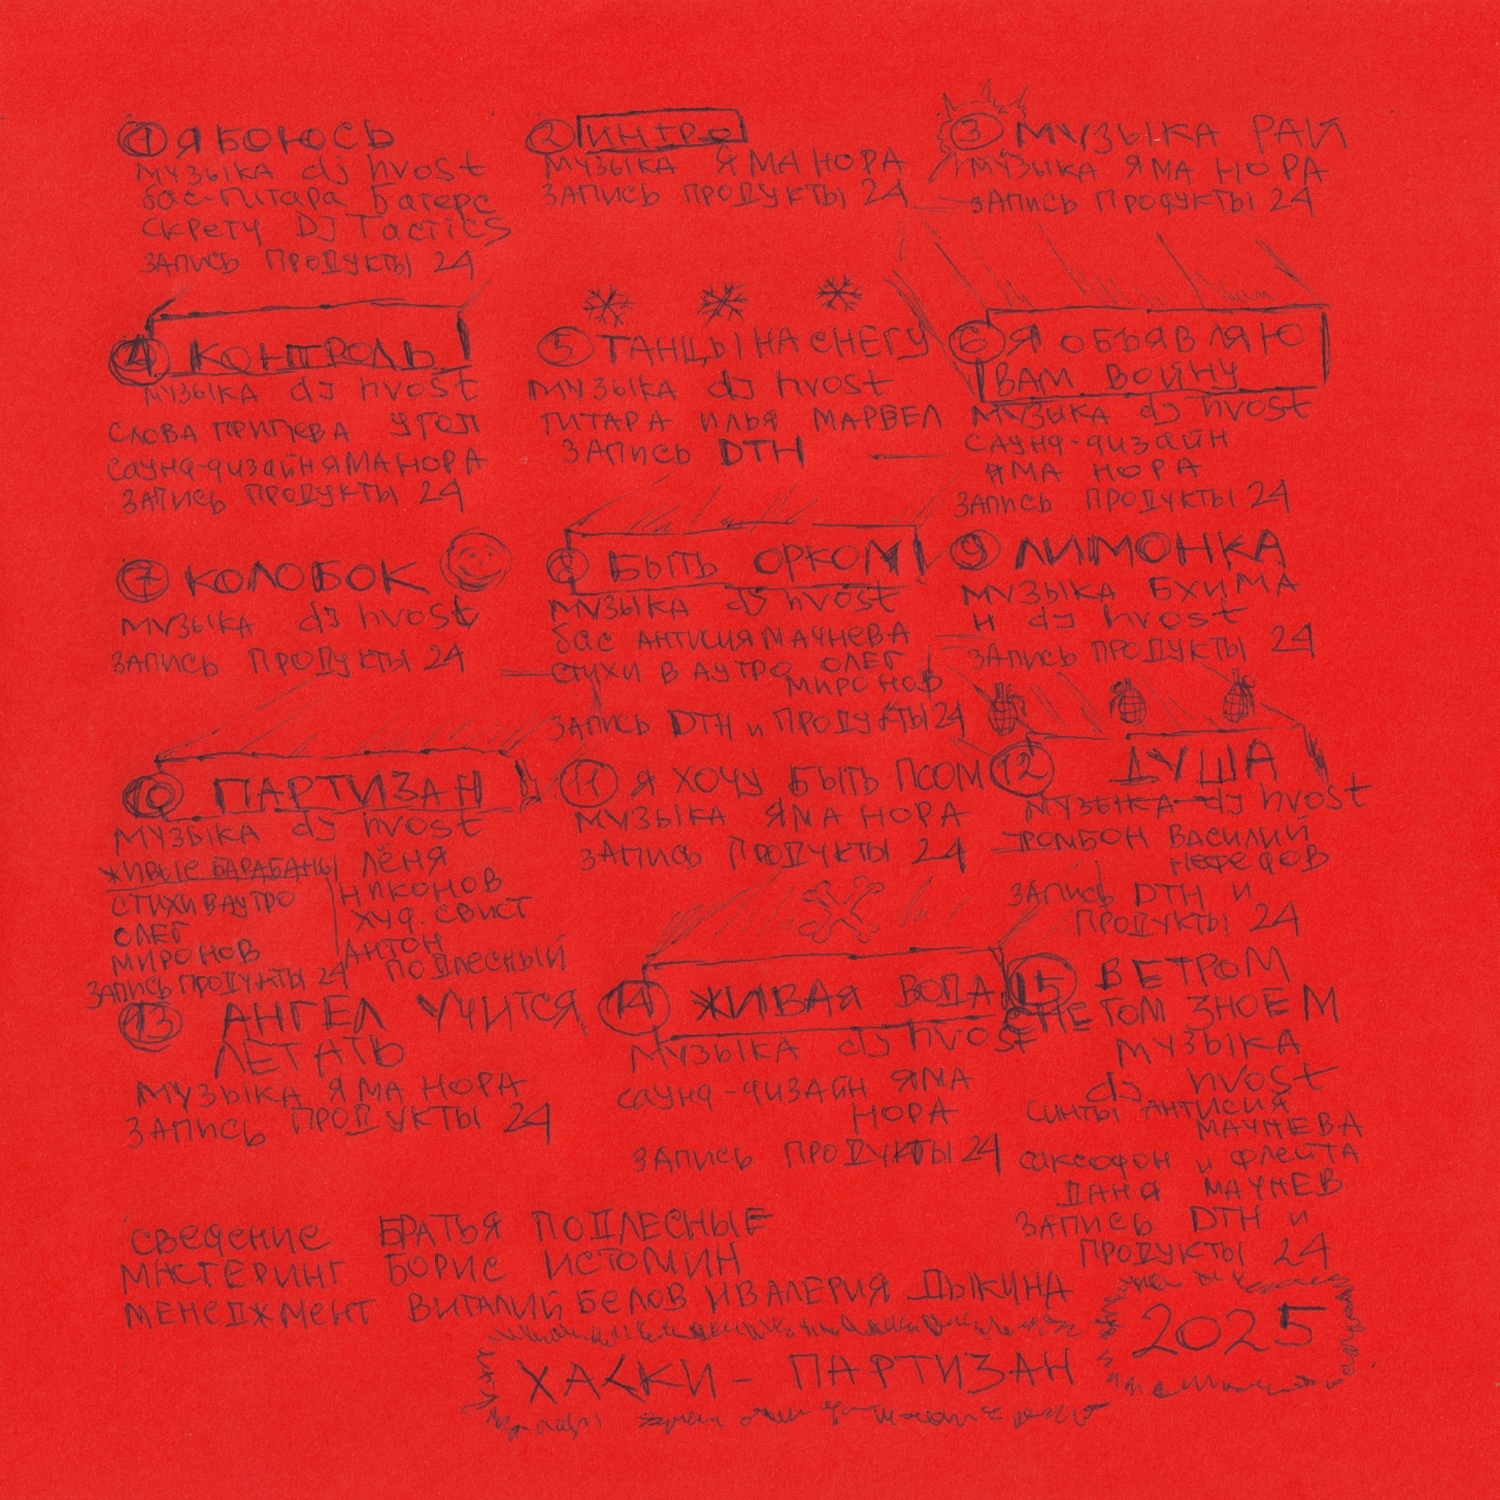 1 Я БОЮСЬ
МУЗЫКА dj hvost
бас-гитара Батерс
скретч DJ Tactics
ЗАПИСЬ ПРОДУКТЫ 24
2 ИНТРО
МУЗЫКА ЯМА НОРА
ЗАПИСЬ ПРОДУКТЫ 24
3 МУЗЫКА РАЙ
МУЗЫКА ЯМА НОРА
ЗАПИСЬ ПРОДУКТЫ 24
4 КОНТРОЛЬ
МУЗЫКА dj hvost
СЛОВА ПРИПЕВА УГОЛ
САУНД-ДИЗАЙН ЯМА НОРА
ЗАПИСЬ ПРОДУКТЫ 24
5 ТАНЦЫ НА СНЕГУ
МУЗЫКА dj hvost
ГИТАРА ИЛЬЯ МАРВЕЛ
ЗАПИСЬ DTH
6 Я ОБЪЯВЛЯЮ
ВАМ ВОЙНУ
МУЗЫКА dj hvost
САУНД-ДИЗАЙН
ЯМА НОРА
ЗАПИСЬ ПРОДУКТЫ 24
7 КОЛОБОК
МУЗЫКА dj hvost
ЗАПИСЬ ПРОДУКТЫ 24
8 БЫТЬ ОРКОМ
МУЗЫКА dj hvost
бас АНТИСИЯ МАЧНЕВА
СТИХИ В АУТРО ОЛЕГ
МИРОНОВ
ЗАПИСЬ DTH и ПРОДУКТЫ 24
9 ЛИМОНКА
МУЗЫКА БХИМА
И dj hvost
ЗАПИСЬ ПРОДУКТЫ 24
10 ПАРТИЗАН
МУЗЫКА dj hvost
ЖИВЫЕ БАРАБАНЫ ЛЁНЯ
НИКОНОВ
СТИХИ В АУТРО
ОЛЕГ
МИРОНОВ
ХУД. СВИСТ
АНТОН
ПОДЛЕСНЫЙ
ЗАПИСЬ ПРОДУКТЫ 24
11 Я ХОЧУ БЫТЬ ПСОМ
МУЗЫКА ЯМА НОРА
ЗАПИСЬ ПРОДУКТЫ 24
12 ДУША
МУЗЫКА dj hvost
ТРОМБОН ВАСИЛИЙ
НЕФЕДОВ
ЗАПИСЬ DTH И
ПРОДУКТЫ 24
13 АНГЕЛ УЧИТСЯ
ЛЕТАТЬ
МУЗЫКА ЯМА НОРА
ЗАПИСЬ ПРОДУКТЫ 24
14 ЖИВАЯ ВОДА
МУЗЫКА dj hvost
САУНД-ДИЗАЙН ЯМА
НОРА
ЗАПИСЬ ПРОДУКТЫ 24
15 ВЕТРОМ
СНЕГОМ ЗНОЕМ
МУЗЫКА
dj hvost
СИНТЫ АНТИСИЯ
МАЧНЕВА
саксофон и флейта
ДАНЯ МАЧНЕВ
ЗАПИСЬ DTH и
ПРОДУКТЫ 24
СВЕДЕНИЕ БРАТЬЯ ПОДЛЕСНЫЕ
МАСТЕРИНГ БОРИС ИСТОМИН
МЕНЕДЖМЕНТ ВИТАЛИЙ БЕЛОВ И ВАЛЕРИЯ ДЫКИНА
ХАСКИ - ПАРТИЗАН
2025